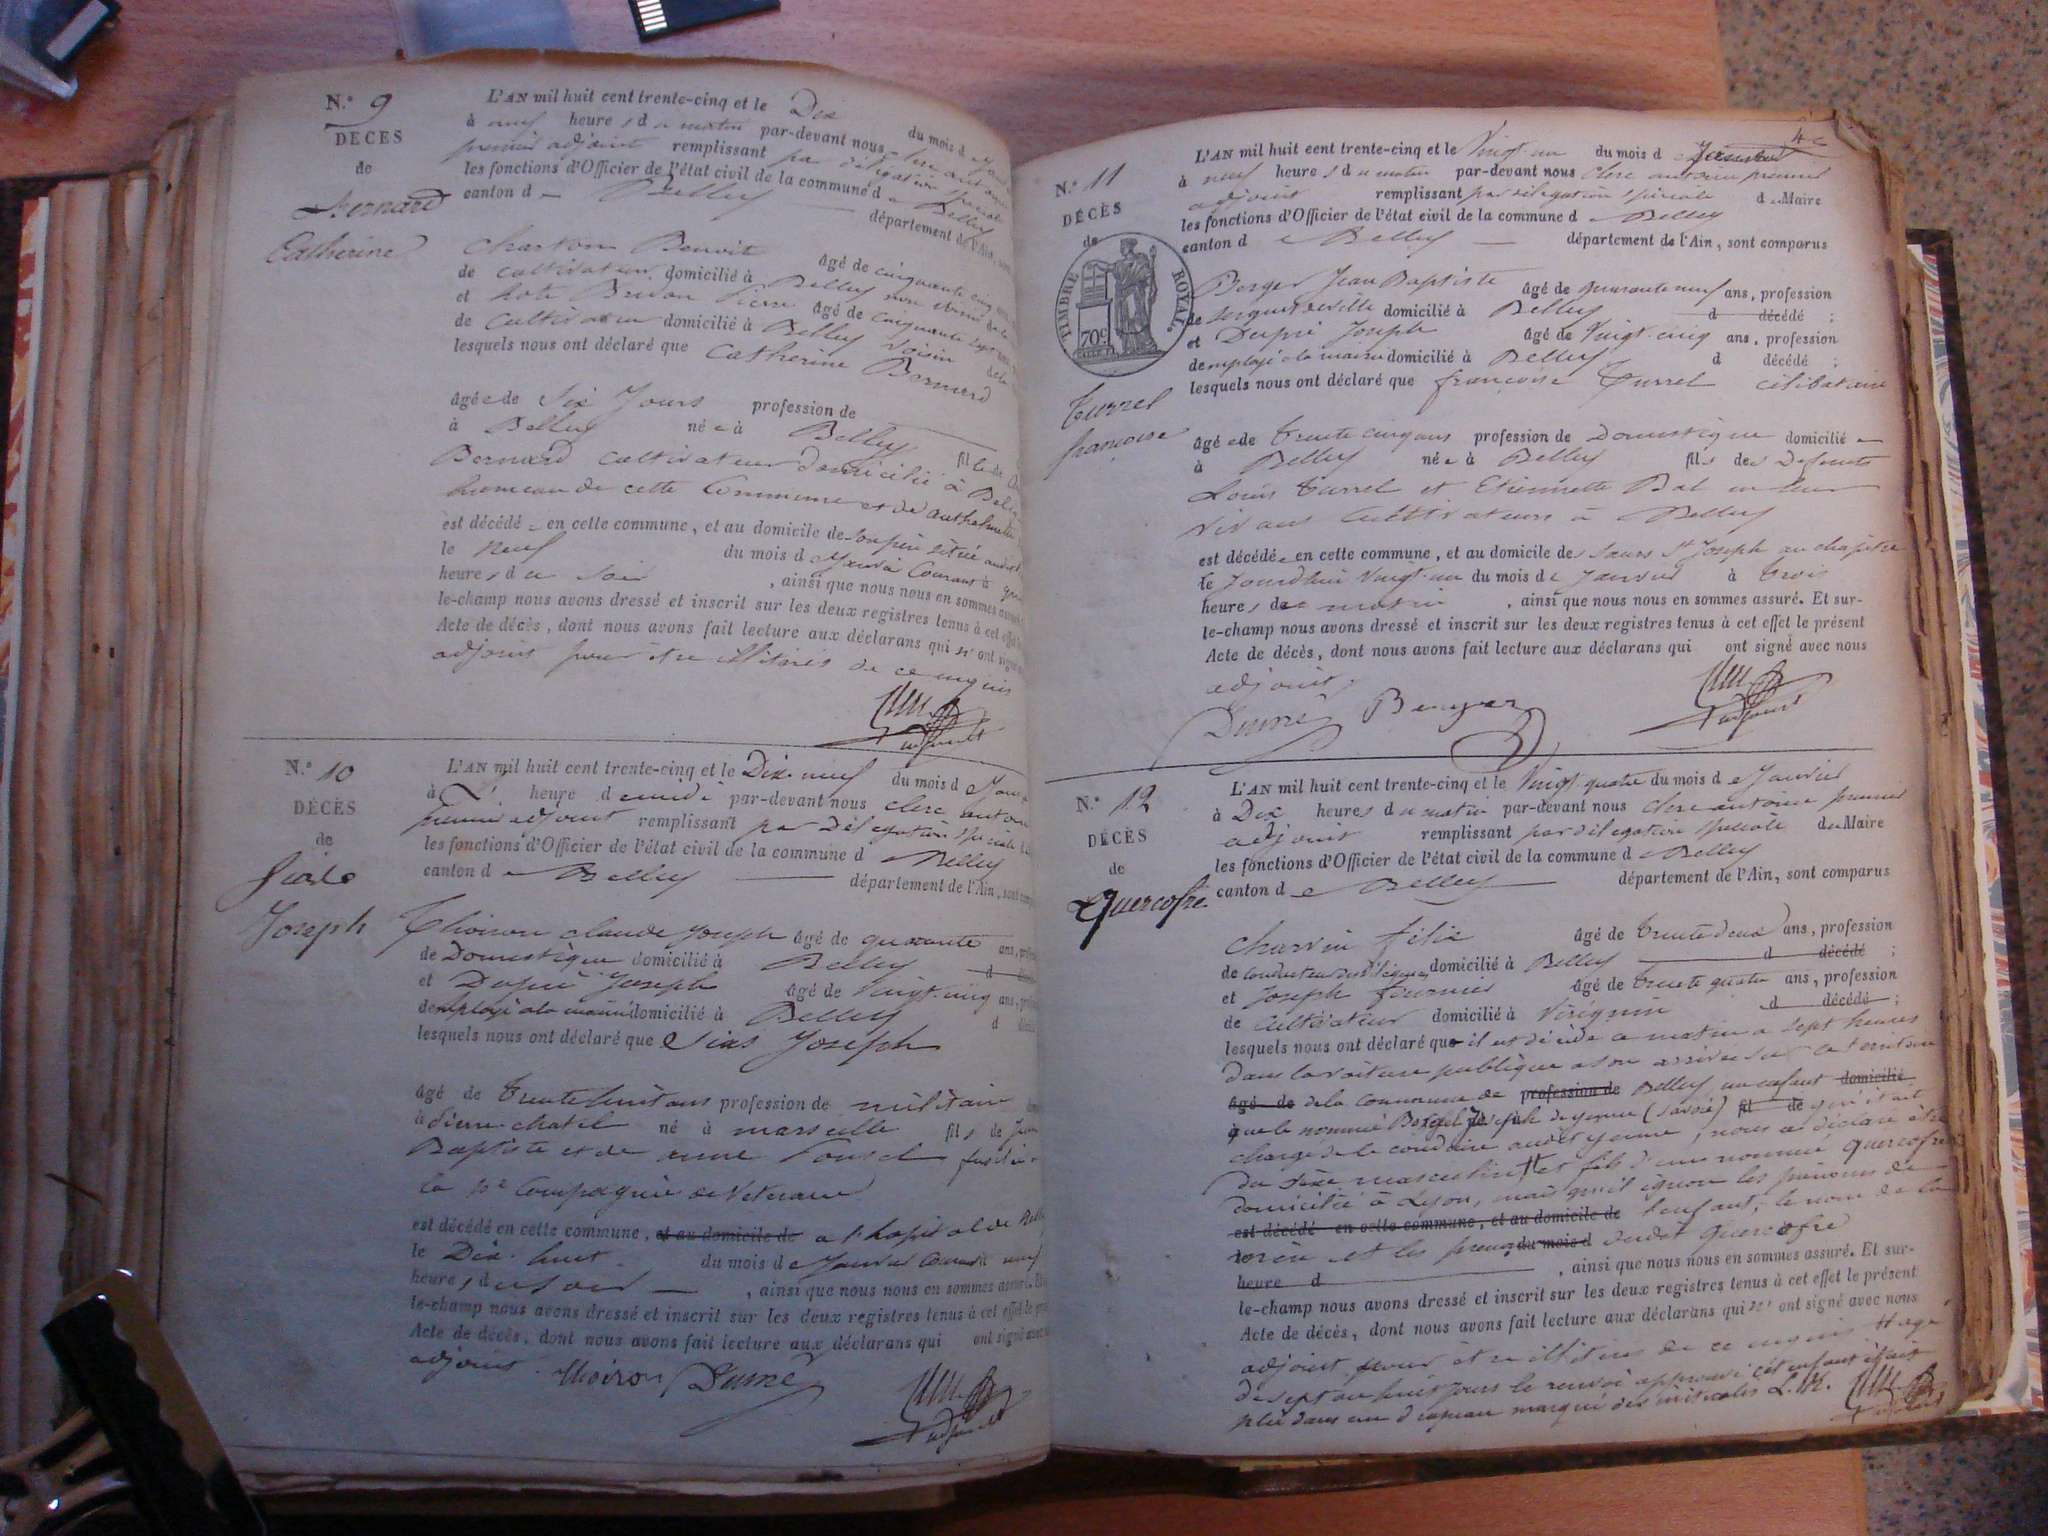 N.° 9
DÉCÈS
de
Bernard
Catherine
L'AN mil huit cent trente-cinq et le Dix du mois d
à neuf heures du matin par-devant nous
premier adjoint remplissant par délégation spéciale
les fonctions d'Officier de l'état civil de la commune de Belley
canton d Belley département de l'Ain
Benoit âgé de cinquante cinq
de cultivateur domicilié à Belley
et Pierre âgé de cinquante sept
de cultivateur domicilié à Belley voisin
lesquels nous ont déclaré que Catherine Bernard
âgée de Six Jours profession de
à Belley née à Belley fille de
Bernard cultivateur domicilié à
hameau de cette Commune et de
est décédée en cette commune, et au domicile de son père situé
le neuf du mois de Janvier Courant à
heures du soir , ainsi que nous nous en sommes assuré
le-champ nous avons dressé et inscrit sur les deux registres tenus à cet effet
Acte de décès, dont nous avons fait lecture aux déclarans qui n'ont signé
adjoint pour être illitérés de ce enquis
adjoint
N.° 10
DÉCÈS
de
Joseph
L'AN mil huit cent trente-cinq et le Dix-neuf du mois de
à heure de midi par-devant nous clerc
premier adjoint remplissant par délégation spéciale
les fonctions d'Officier de l'état civil de la commune d Belley
canton de Belley département de l'Ain, sont
claude Joseph âgé de quarante ans,
de Domestique domicilié à Belley d
et Dupré Joseph âgé de Vingt-cinq ans,
demployé à la mairie domicilié à Belley d
lesquels nous ont déclaré que Joseph
âgé de trente huit ans profession de militaire
à Pierre-chatel né à marseille fils de Jean
Baptiste et de anne fusilier
la Compagnie de Veterans
est décédé en cette commune, et au domicile de a l'hopital de
le Dix-huit du mois de Janvier Courant neuf
heures du soir , ainsi que nous nous en sommes assuré
le-champ nous avons dressé et inscrit sur les deux registres tenus à cet effet le
Acte de décès, dont nous avons fait lecture aux déclarans qui ont signé avec
adjoint.
adjoint
N.° 11
DÉCÈS
de
TIMBRE ROYAL.
70c
Turrel
françoise
L'AN mil huit cent trente-cinq et le Vingt un du mois de Janvier
à neuf heures du matin par-devant nous clerc antoine premier
adjoint remplissant par délégation spéciale du Maire
les fonctions d'Officier de l'état civil de la commune de Belley
canton de Belley département de l'Ain, sont comparus
Berger Jean Baptiste âgé de quarante neuf ans, profession
de domicilié à Belley d décédé ;
et Dupré Joseph âgé de Vingt-cinq ans, profession
demployé a la mairie domicilié à Belley d décédé ;
lesquels nous ont déclaré que françoise Turrel célibataire
âgée de trente cinq ans profession de Domestique domiciliée
à Belley née à Belley fils des Defunts
Louis Turrel et Etiennette Bal
vivans Cultivateurs à Belley
est décédée en cette commune, et au domicile des Sœurs St Joseph au chapitre
le Jourd'hui Vingt-un du mois de Janvier à trois
heures du matin , ainsi que nous nous en sommes assuré. Et sur-
le-champ nous avons dressé et inscrit sur les deux registres tenus à cet effet le présent
Acte de décès, dont nous avons fait lecture aux déclarans qui ont signé avec nous
adjoint.
Berger
adjoint
N.° 12
DÉCÈS
de
Quercofre
L'AN mil huit cent trente-cinq et le Vingt quatre du mois de Janvier
à Dix heures du matin par-devant nous clerc antoine premier
adjoint remplissant par délégation spéciale du Maire
les fonctions d'Officier de l'état civil de la commune de Belley
canton de Belley département de l'Ain, sont comparus
Charvin félix âgé de trente deux ans, profession
de domicilié à Belley d décédé ;
et Joseph fournier âgé de trente quatre ans, profession
de Cultivateur domicilié à Virignin d décédé ;
lesquels nous ont déclaré que il est décédé ce matin a sept heures
dans la voiture publique a son arrivée sur ce territoire
âgé de de la commune de profession de Belley un enfant domicilié
que le nommé Joseph de yenne (Savoie) fil de qui était
chargé de le conduire audit yenne, nous a déclaré être
du Sexe masculin et fils d'une nommée Quercofre
domiciliée à Lyon, mais qu'il ignore les prénoms de
est décédé en cette commune, et au domicile de l'enfant, le nom de la
mère et les du mois d dudit Quercofre
heure d , ainsi que nous nous en sommes assuré. Et sur-
le-champ nous avons dressé et inscrit sur les deux registres tenus à cet effet le présent
Acte de décès, dont nous avons fait lecture aux déclarans qui n'ont signé avec nous
adjoint pour être illitérés de ce enquis
de sept ou huit jours le renvoi approuvé cet enfant était
plié dans un drapeau marqué des initiales L. H.
adjoint